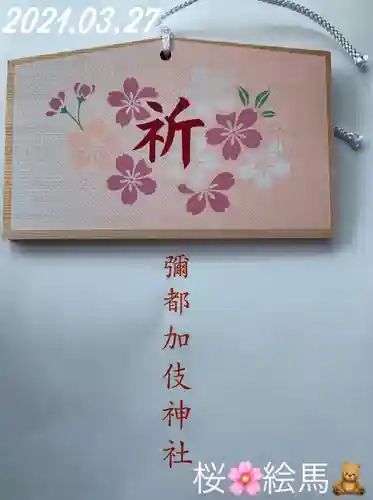 2021.03.27
祈
彌都加伎神社
桜🌸絵馬🧸